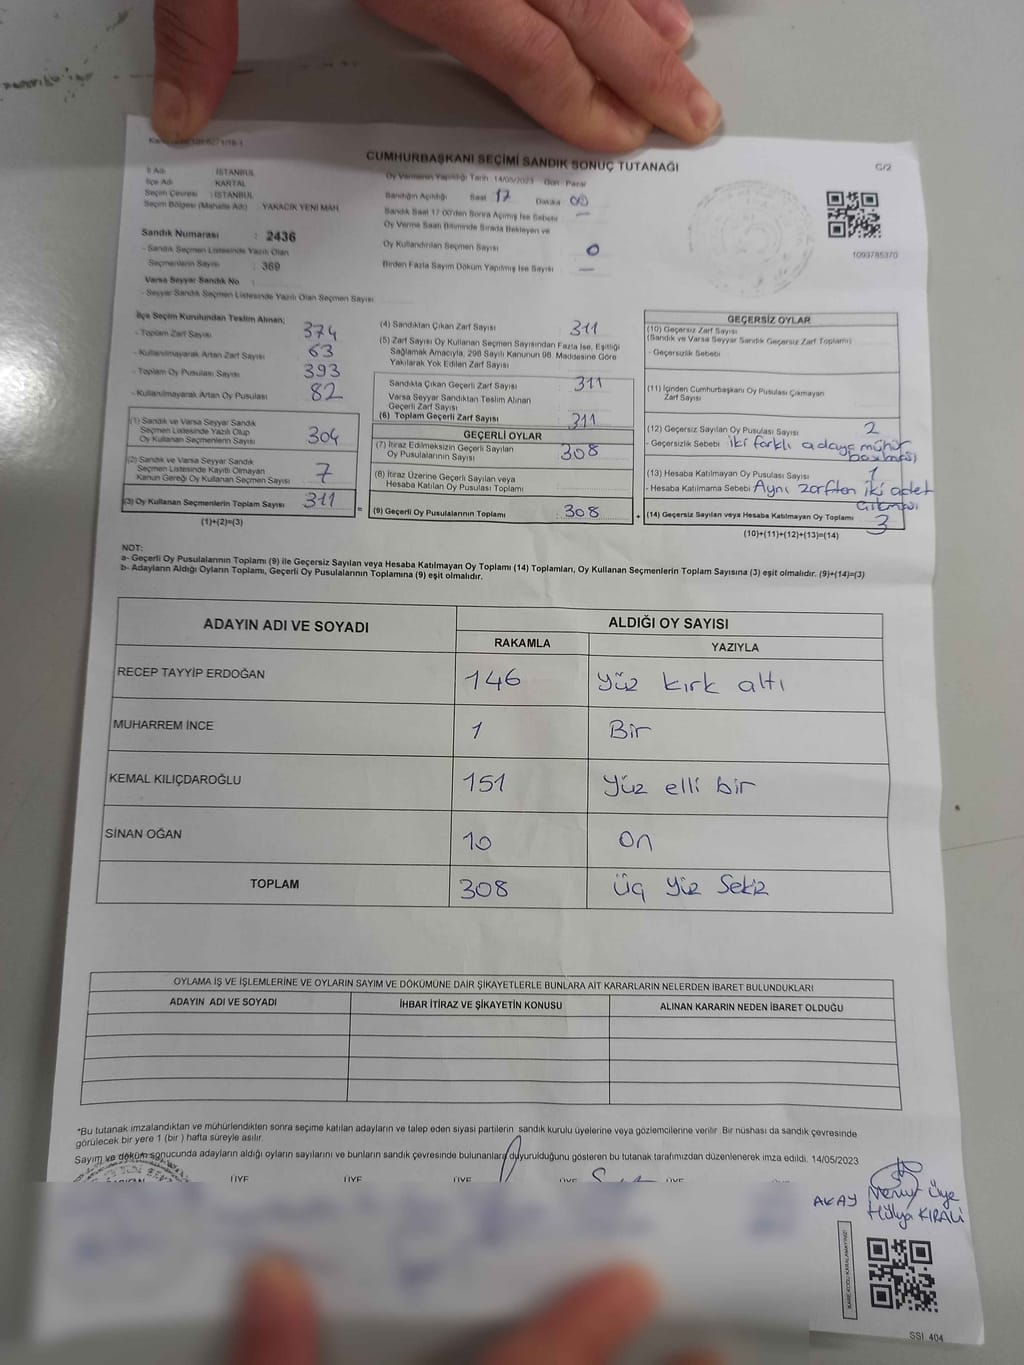 CUMHURBAŞKANI SEÇİMİ SANDIK SONUÇ TUTANAĞI
G/2
İl Adı : İSTANBUL
İlçe Adı : KARTAL
Seçim Çevresi : İSTANBUL
Seçim Bölgesi (Mahalle Adı) : YAKACIK YENİ MAH.
Sandık Numarası : 2436
- Sandık Seçmen Listesinde Yazılı Olan
Seçmenlerin Sayısı : 369
Varsa Seyyar Sandık No :
- Seyyar Sandık Seçmen Listesinde Yazılı Olan Seçmen Sayısı
Oy Vermenin Yapıldığı Tarih : 14/05/2023 Gün : Pazar
Sandığın Açıldığı Saat 17 Dakika 00
Sandık Saat 17:00'den Sonra Açılmış İse Sebebi —
Oy Verme Saati Bitiminde Sırada Bekleyen ve
Oy Kullandırılan Seçmen Sayısı 0
Birden Fazla Sayım Döküm Yapılmış İse Sayısı —
1093785370
İlçe Seçim Kurulundan Teslim Alınan;
- Toplam Zarf Sayısı 374
- Kullanılmayarak Artan Zarf Sayısı 63
- Toplam Oy Pusulası Sayısı 393
- Kullanılmayarak Artan Oy Pusulası 82
(1) Sandık ve Varsa Seyyar Sandık
Seçmen Listesinde Yazılı Olup
Oy Kullanan Seçmenlerin Sayısı 304
(2) Sandık ve Varsa Seyyar Sandık
Seçmen Listesinde Kayıtlı Olmayan
Kanun Gereği Oy Kullanan Seçmen Sayısı 7
(3) Oy Kullanan Seçmenlerin Toplam Sayısı 311
(1)+(2)=(3)
(4) Sandıktan Çıkan Zarf Sayısı 311
(5) Zarf Sayısı Oy Kullanan Seçmen Sayısından Fazla İse, Eşitliği
Sağlamak Amacıyla, 298 Sayılı Kanunun 98. Maddesine Göre
Yakılarak Yok Edilen Zarf Sayısı
Sandıkta Çıkan Geçerli Zarf Sayısı 311
Varsa Seyyar Sandıktan Teslim Alınan
Geçerli Zarf Sayısı
(6) Toplam Geçerli Zarf Sayısı 311
GEÇERLİ OYLAR
(7) İtiraz Edilmeksizin Geçerli Sayılan
Oy Pusulalarının Sayısı 308
(8) İtiraz Üzerine Geçerli Sayılan veya
Hesaba Katılan Oy Pusulası Toplamı
(9) Geçerli Oy Pusulalarının Toplamı 308
GEÇERSİZ OYLAR
(10) Geçersiz Zarf Sayısı
(Sandık ve Varsa Seyyar Sandık Geçersiz Zarf Toplamı)
- Geçersizlik Sebebi
(11) İçinden Cumhurbaşkanı Oy Pusulası Çıkmayan
Zarf Sayısı
(12) Geçersiz Sayılan Oy Pusulası Sayısı 2
- Geçersizlik Sebebi iki farklı adaya mühür
basılması
(13) Hesaba Katılmayan Oy Pusulası Sayısı 1
- Hesaba Katılmama Sebebi Aynı zarftan iki adet
çıkması
(14) Geçersiz Sayılan veya Hesaba Katılmayan Oy Toplamı 3
(10)+(11)+(12)+(13)=(14)
NOT:
a- Geçerli Oy Pusulalarının Toplamı (9) ile Geçersiz Sayılan veya Hesaba Katılmayan Oy Toplamı (14) Toplamları, Oy Kullanan Seçmenlerin Toplam Sayısına (3) eşit olmalıdır. (9)+(14)=(3)
b- Adayların Aldığı Oyların Toplamı, Geçerli Oy Pusulalarının Toplamına (9) eşit olmalıdır.
ADAYIN ADI VE SOYADI ALDIĞI OY SAYISI
RAKAMLA YAZIYLA
RECEP TAYYİP ERDOĞAN 146 Yüz kırk altı
MUHARREM İNCE 1 Bir
KEMAL KILIÇDAROĞLU 151 Yüz elli bir
SİNAN OĞAN 10 On
TOPLAM 308 Üç Yüz Sekiz
OYLAMA İŞ VE İŞLEMLERİNE VE OYLARIN SAYIM VE DÖKÜMÜNE DAİR ŞİKAYETLERLE BUNLARA AİT KARARLARIN NELERDEN İBARET BULUNDUKLARI
ADAYIN ADI VE SOYADI İHBAR İTİRAZ VE ŞİKAYETİN KONUSU ALINAN KARARIN NEDEN İBARET OLDUĞU
*Bu tutanak imzalandıktan ve mühürlendikten sonra seçime katılan adayların ve talep eden siyasi partilerin sandık kurulu üyelerine veya gözlemcilerine verilir. Bir nüshası da sandık çevresinde
görülecek bir yere 1 (bir) hafta süreyle asılır.
Sayım ve döküm sonucunda adayların aldığı oyların sayılarını ve bunların sandık çevresinde bulunanlara duyurulduğunu gösteren bu tutanak tarafımızdan düzenlenerek imza edildi. 14/05/2023
ÜYE ÜYE ÜYE ÜYE ÜYE ÜYE
AKAY Memur Üye
Hülya KIRALİ
SSI 404